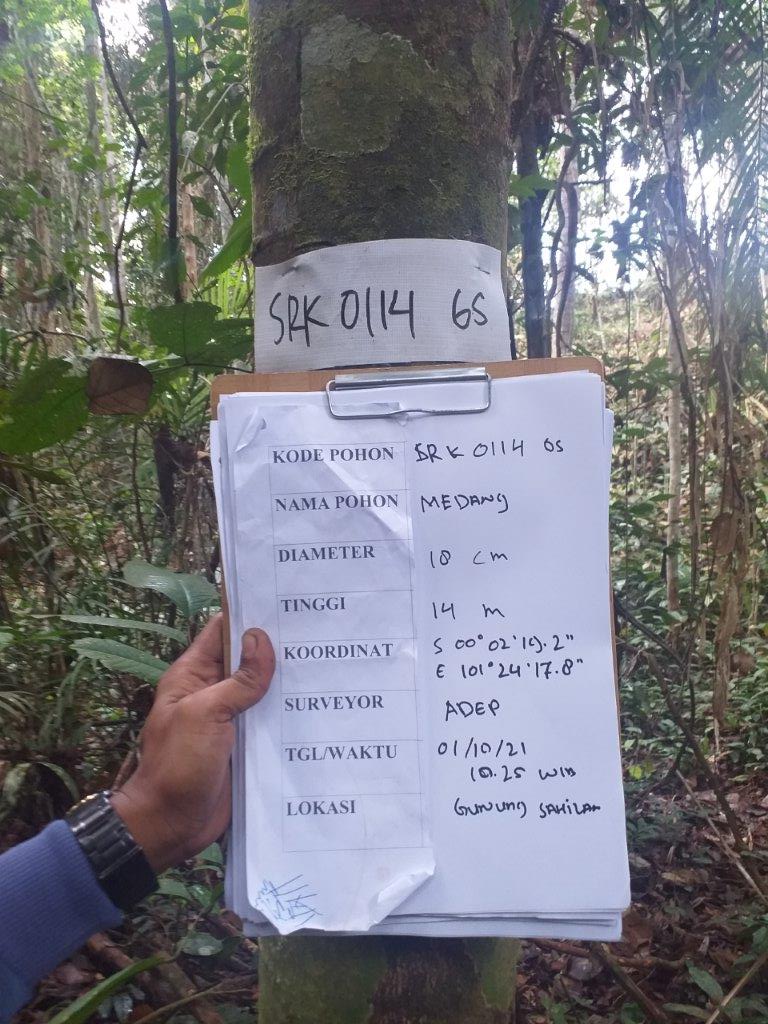 SRK 0114 GS
KODE POHON SRK 0114 GS
NAMA POHON MEDANG
DIAMETER 18 cm
TINGGI 14 m
KOORDINAT S 00°02'19.2"
E 101°24'17.8"
SURVEYOR ADEP
TGL/WAKTU 01/10/21
10.25 WIB
LOKASI GUNUNG SAHILAN